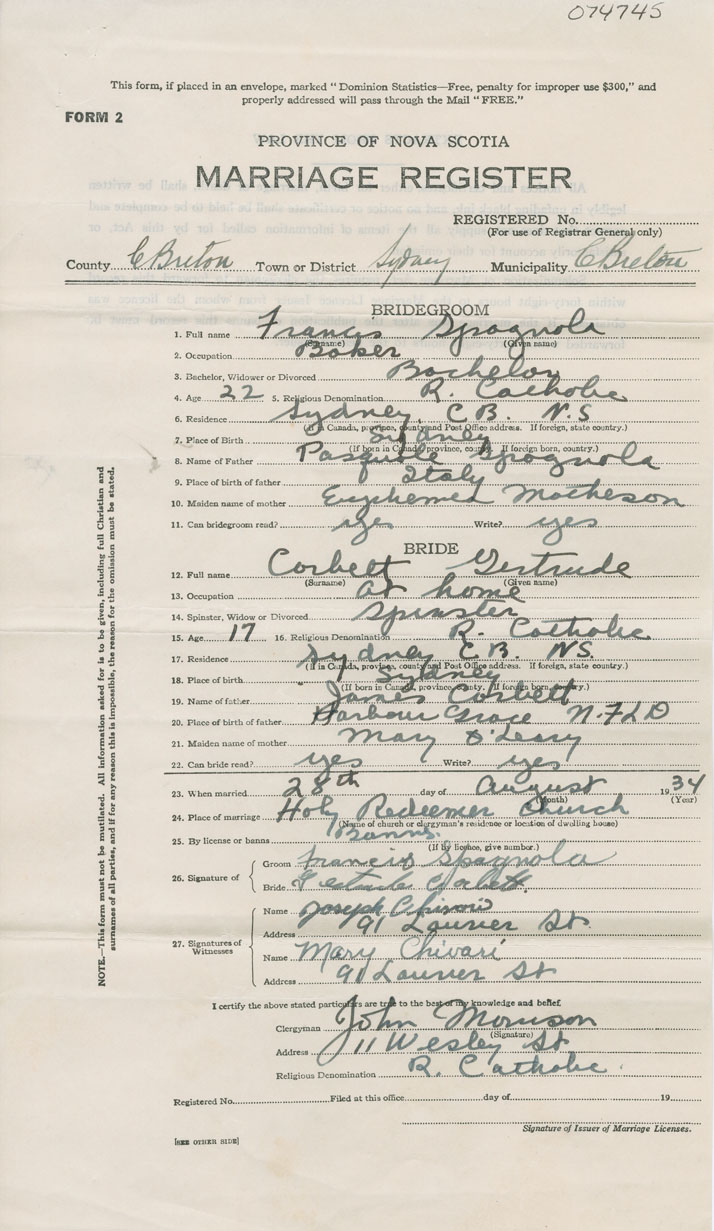 074745
This form, if placed in an envelope, marked "Dominion Statistics—Free, penalty for improper use $300," and
properly addressed will pass through the Mail "FREE."
FORM 2
PROVINCE OF NOVA SCOTIA
MARRIAGE REGISTER
REGISTERED No.
(For use of Registrar General only)
County C Breton Town or District Sydney Municipality C Breton
BRIDEGROOM
1. Full name Francis Spagnola
(Surname) (Given name)
2. Occupation Baker
3. Bachelor, Widower or Divorced Bachelor
4. Age 22 5. Religious Denomination R. Catholic
6. Residence Sydney, C.B. N.S
(If in Canada, province, county and Post Office address. If foreign, state country.)
7. Place of Birth Sydney
(If born in Canada, province, county. If foreign born, country.)
8. Name of Father Pasquale Spagnola
9. Place of birth of father Italy
10. Maiden name of mother Euphemea Matheson
11. Can bridegroom read? yes Write? yes
BRIDE
12. Full name Corbett Gertrude
(Surname) (Given name)
13. Occupation at home
14. Spinster, Widow or Divorced Spinster
15. Age 17 16. Religious Denomination R. Catholic
17. Residence Sydney C.B. N.S.
(If in Canada, province, county and Post Office address. If foreign, state country.)
18. Place of birth Sydney
(If born in Canada, province, county. If foreign born, country.)
19. Name of father James Corbett
20. Place of birth of father Harbour Grace N.F.L.D
21. Maiden name of mother Mary O'Leary
22. Can bride read? yes Write? yes
23. When married 28th day of August 1934
(Month) (Year)
24. Place of marriage Holy Redeemer Church
(Name of church or clergyman's residence or location of dwelling house)
25. By license or banns Banns.
(If by licence, give number.)
26. Signature of
Groom Francis Spagnola
Bride Gertrude Corbett
27. Signatures of Witnesses
Name Joseph
Address 91 Laurier St.
Name Mary Chivari
Address 91 Laurier St
I certify the above stated particulars are true to the best of my knowledge and belief.
Clergyman John Morrison
(Signature)
Address 11 Wesley St
Religious Denomination R. Catholic
Registered No. Filed at this office day of 19
Signature of Issuer of Marriage Licenses.
[SEE OTHER SIDE]
NOTE.—This form must not be mutilated. All information asked for is to be given, including full Christian and
surnames of all parties, and if for any reason this is impossible, the reason for the omission must be stated.